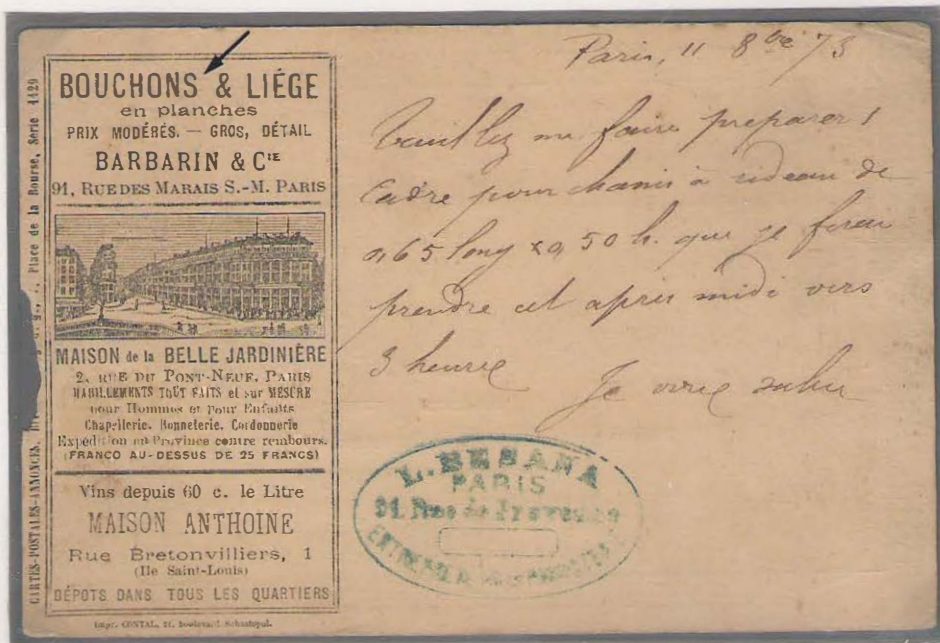 BOUCHONS & LIÉGE
en planches
PRIX MODÉRÉS. — GROS, DÉTAIL
BARBARIN & Cⁱᵉ
91, RUE DES MARAIS S.-M. PARIS
MAISON de la BELLE JARDINIÈRE
2, RUE DU PONT-NEUF, PARIS
HABILLEMENTS TOUT FAITS et sur MESURE
pour Hommes et pour Enfants
Chapellerie, Bonneterie, Cordonnerie
Expédition en Province contre rembours.
(FRANCO AU-DESSUS DE 25 FRANCS)
Vins depuis 60 c. le Litre
MAISON ANTHOINE
Rue Bretonvilliers, 1
(Ile Saint-Louis)
DÉPOTS DANS TOUS LES QUARTIERS
Impr. CONTAL, boulevard Sébastopol.
CARTES-POSTALES-ANNONCES,
Place de la Bourse, Serie 4429
Paris, 11 8bre 73
Veuillez me faire preparer 1
Cadre pour chassis à rideau de
0,65 long x 0,50 h. que je ferai
prendre cet apres midi vers
3 heures
Je vous salue
L. BESANA
PARIS
Rue de Provence
ENTREPRENEUR